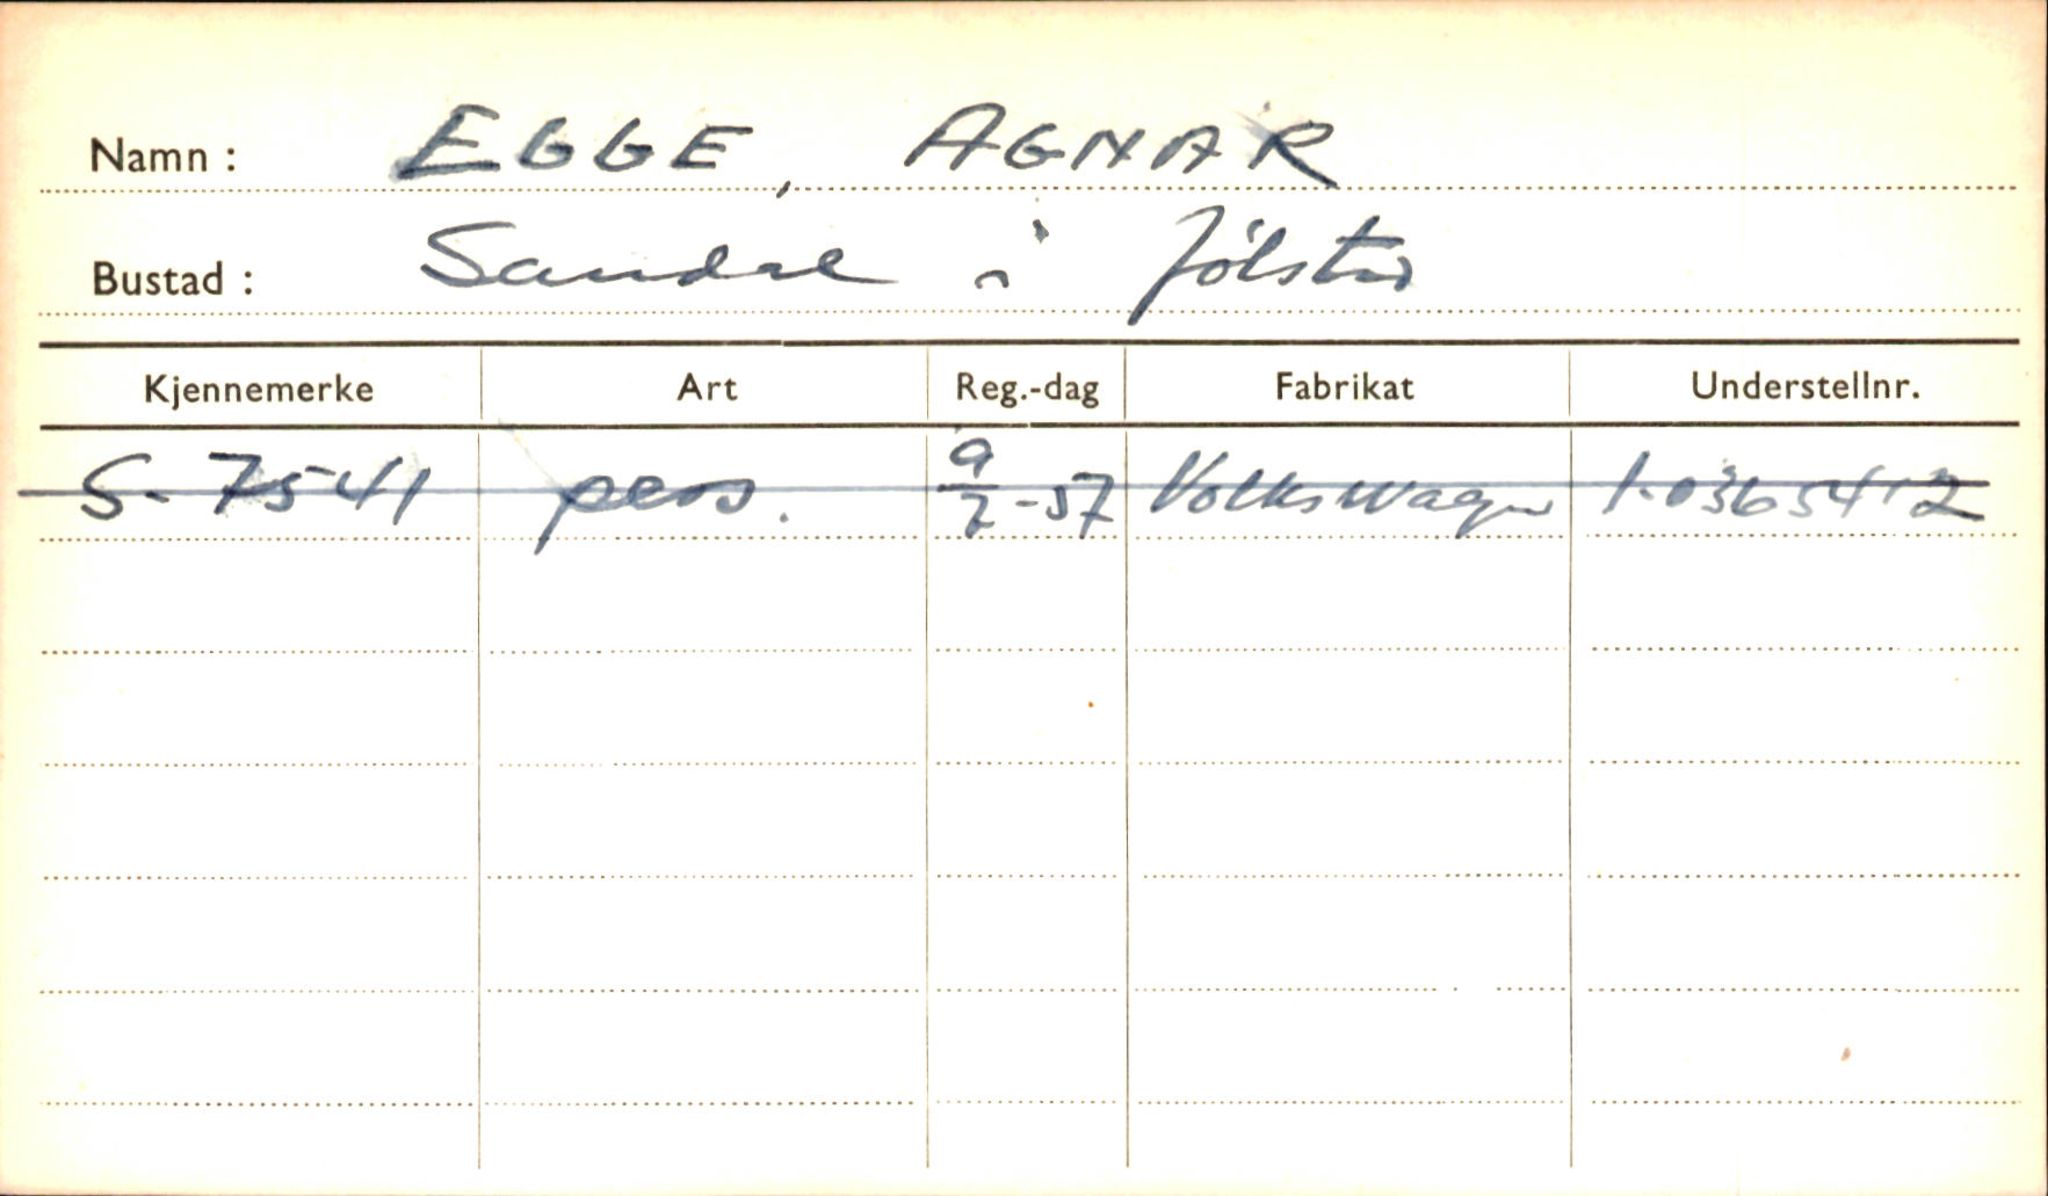 Namn : EGGE, AGNAR
Bustad : Sandal i Jölster
Kjennemerke Art Reg.-dag Fabrikat Understellnr.
S- 7541 pers. 9/7-57 Volkswagen 1-0365412